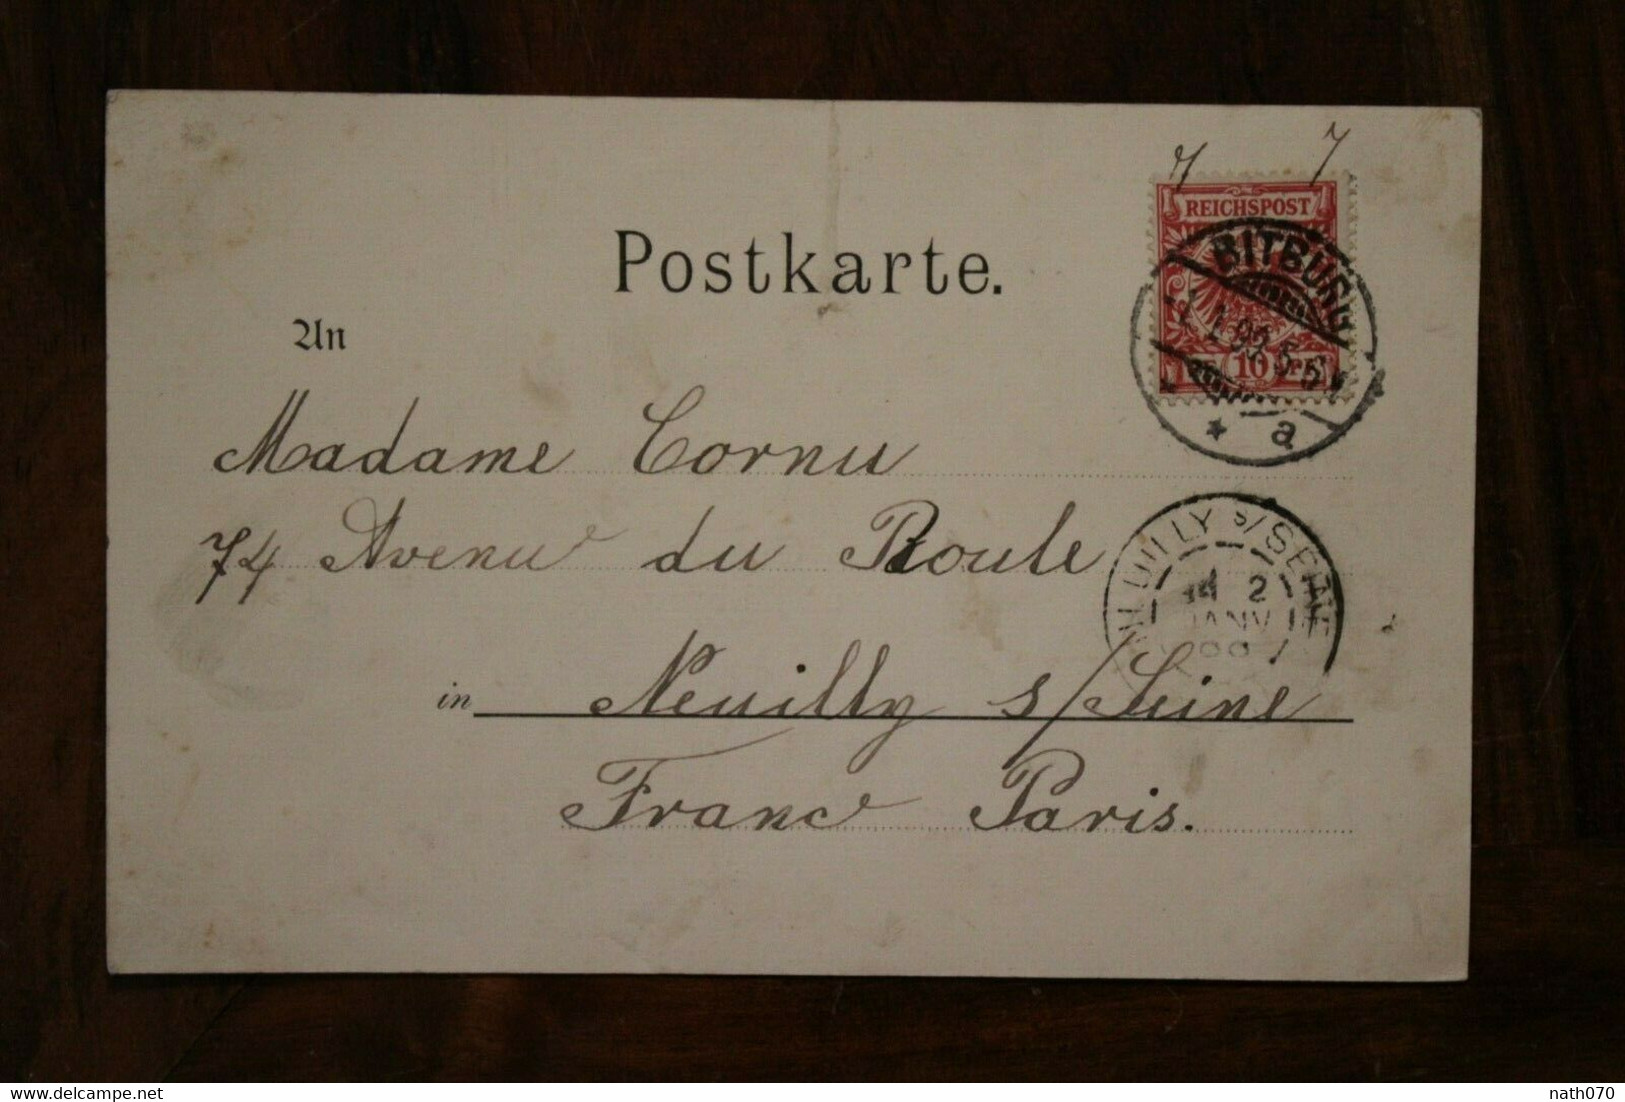 REICHSPOST
BITBURG
10
a
Postkarte.
An
Madame Cornu
74 Avenue du Roule
NEUILLY S/SEINE
2
JANV
in Neuilly s/Seine
France Paris.
nath070
delcampe.net